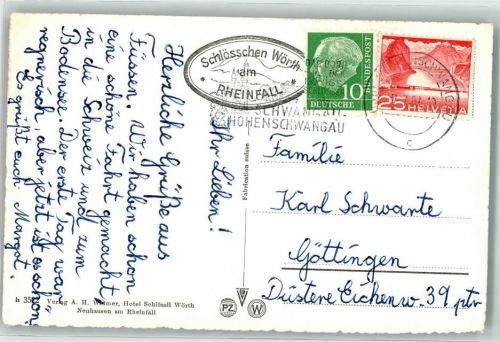 Ihr Lieben!
Herzliche Grüße aus
Füssen. Wir haben schon
eine schöne Fahrt gemacht
in die Schweiz und zum
Bodensee. Der erste Tag war
regnerisch, aber jetzt ist es schön.
Es grüßt euch Margot.
Schlösschen Wörth
am
RHEINFALL
10
DEUTSCHE
BUNDESPOST
25 HELVETIA
SCHWANGAU
HOHENSCHWANGAU
c
Fabrication suisse
Familie
Karl Schwarte
Göttingen
Düstere Eichenw. 39 ptr
Verlag A. H. Widmer, Hotel Schlössli Wörth
Neuhausen am Rheinfall
PZ
W